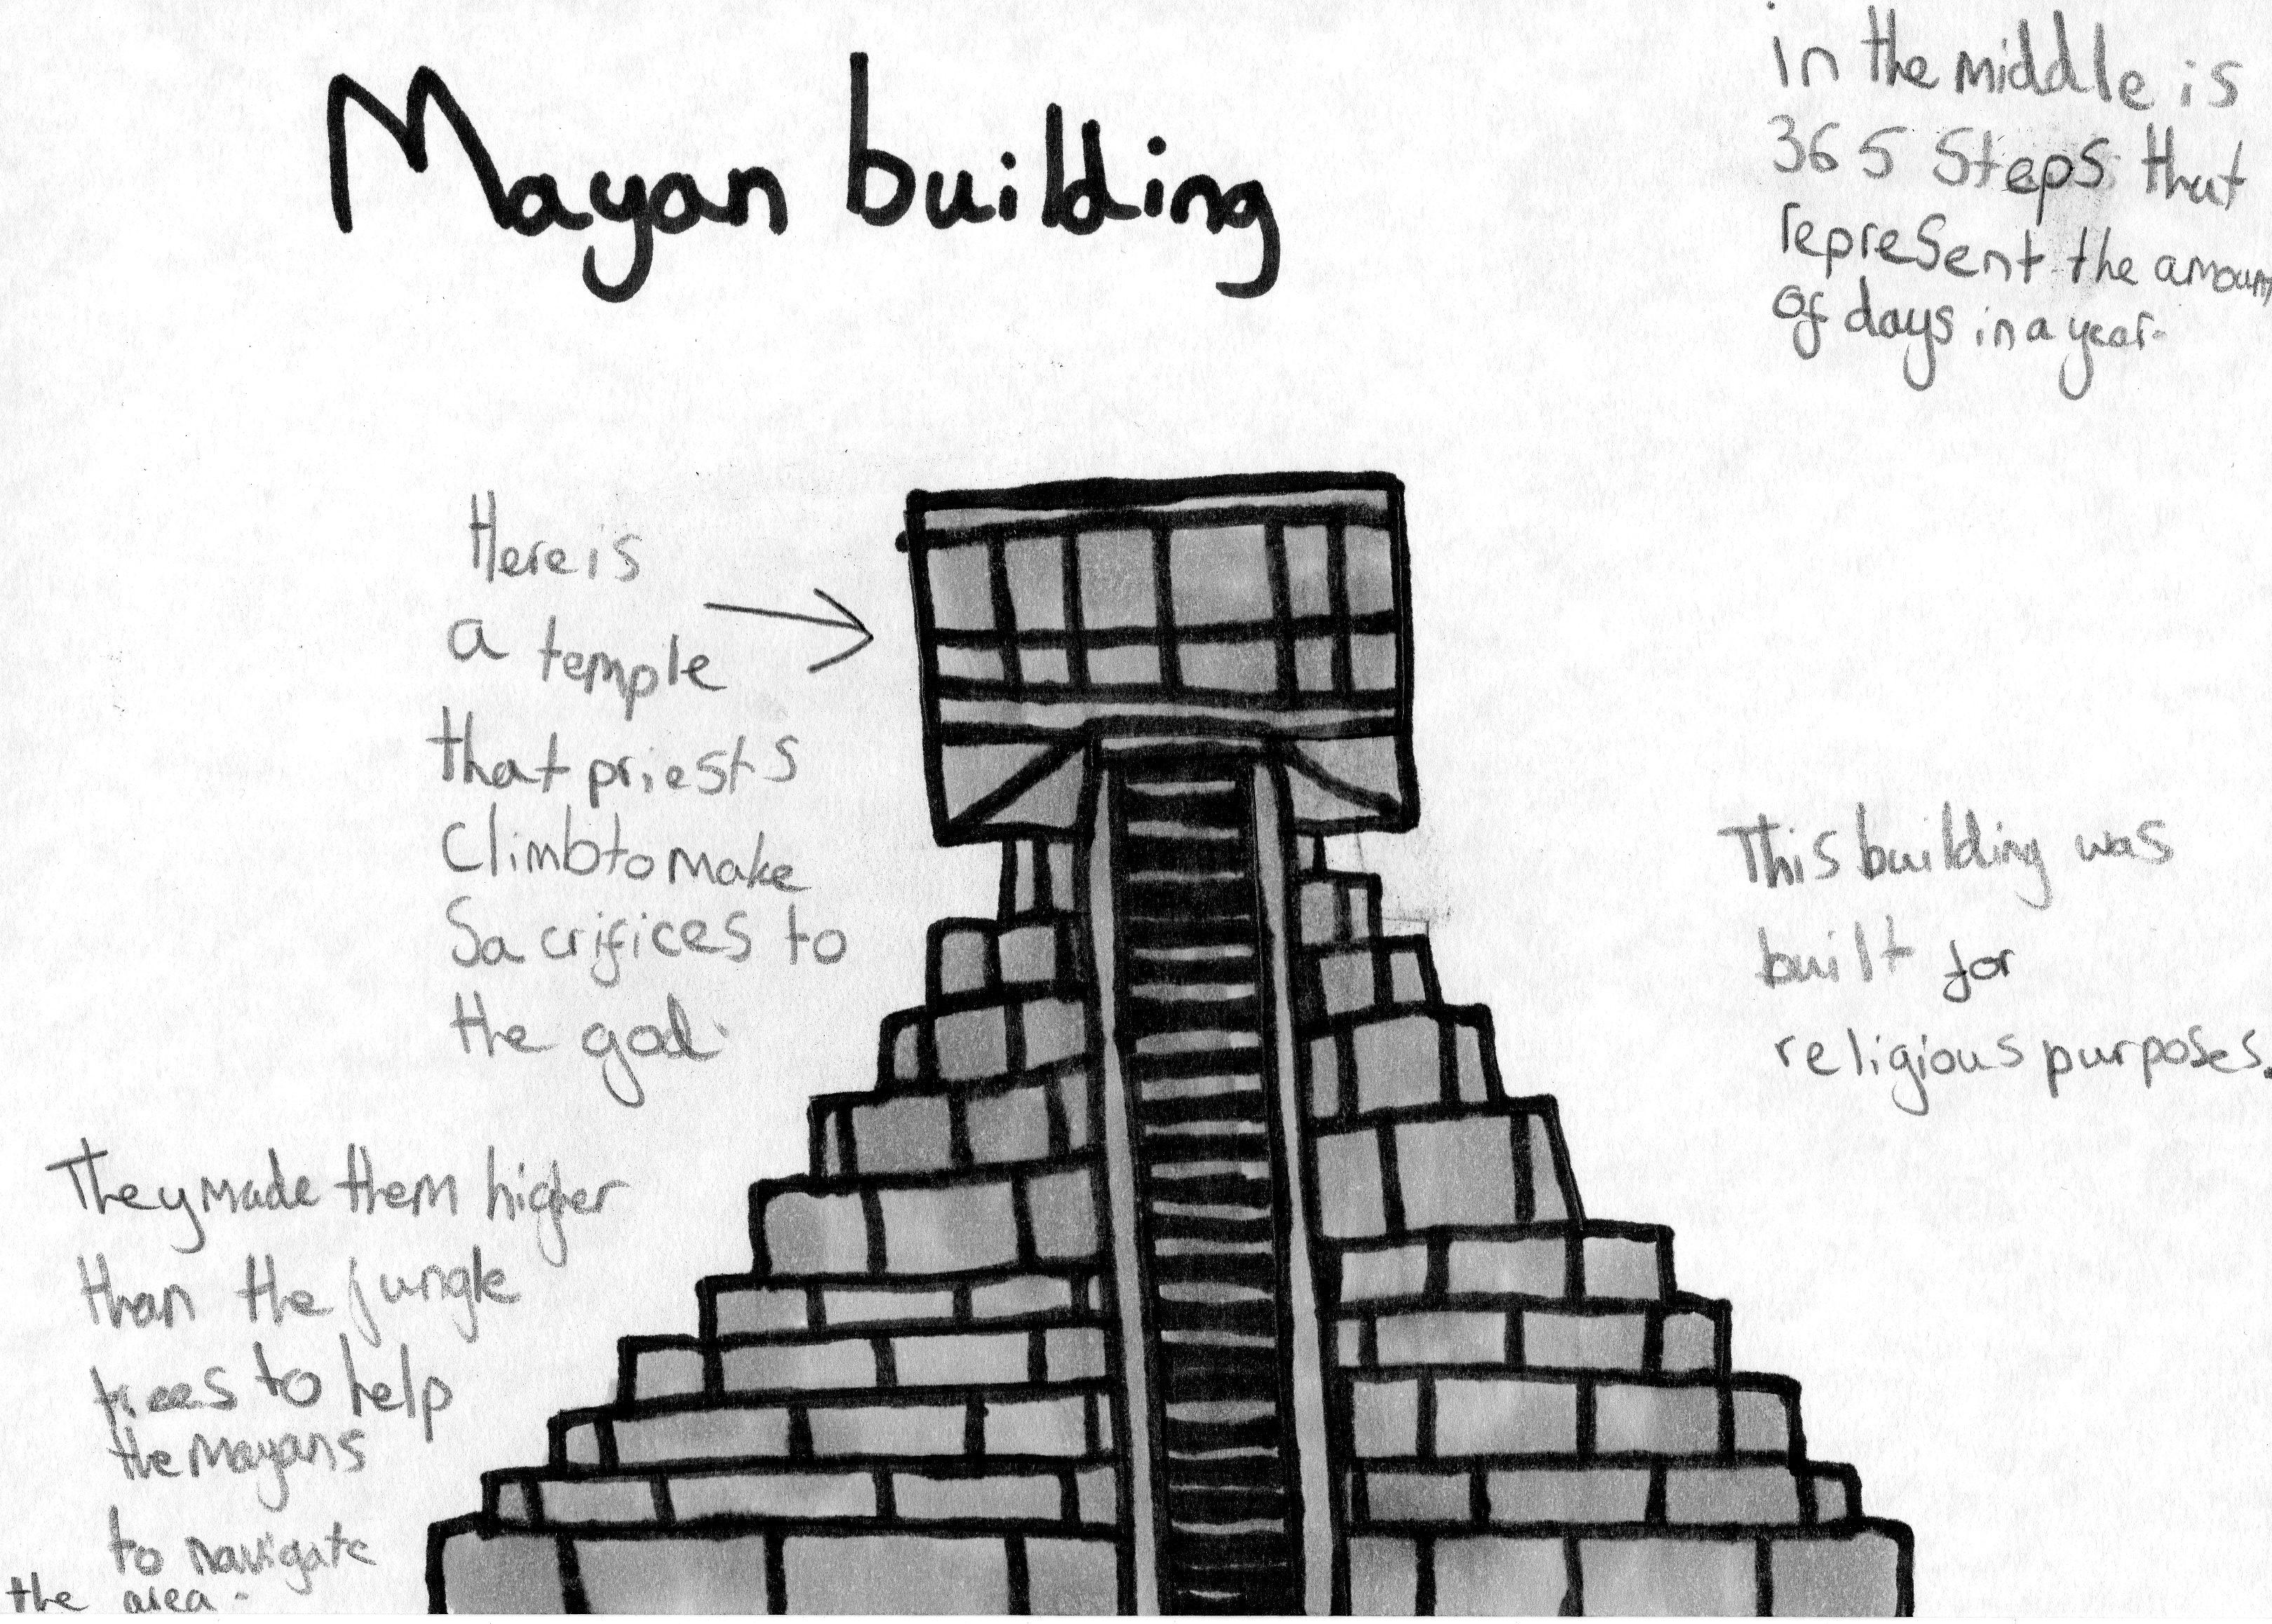 Mayan building
in the middle is
365 Steps that
represent the amount
of days in a year.
Here is
a temple
that priests
Climb to make
Sacrifices to
the god.
This building was
built for
religious purposes.
They made them higher
than the jungle
trees to help
the Mayans
to navigate
the area.